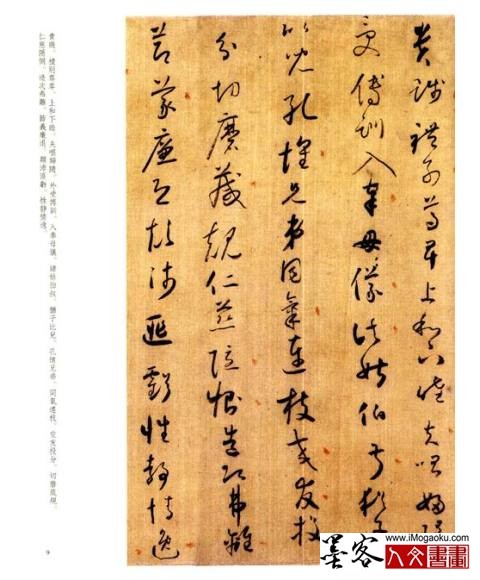 貴賤禮別尊卑上和下睦夫唱婦隨
外受傅訓入奉母儀諸姑伯叔猶子
比兒孔懷兄弟同氣連枝交友投
分切磨箴規仁慈隱惻造次弗離
節義廉退顛沛匪虧性靜情逸
貴賤。禮別尊卑。上和下睦。夫唱婦隨。外受傅訓。入奉母儀。諸姑伯叔。猶子比兒。孔懷兄弟。同氣連枝。交友投分。切磨箴規。
仁慈隱惻。造次弗離。節義廉退。顛沛匪虧。性靜情逸。
9
墨客
www.iMogaoku.com
人文書畫